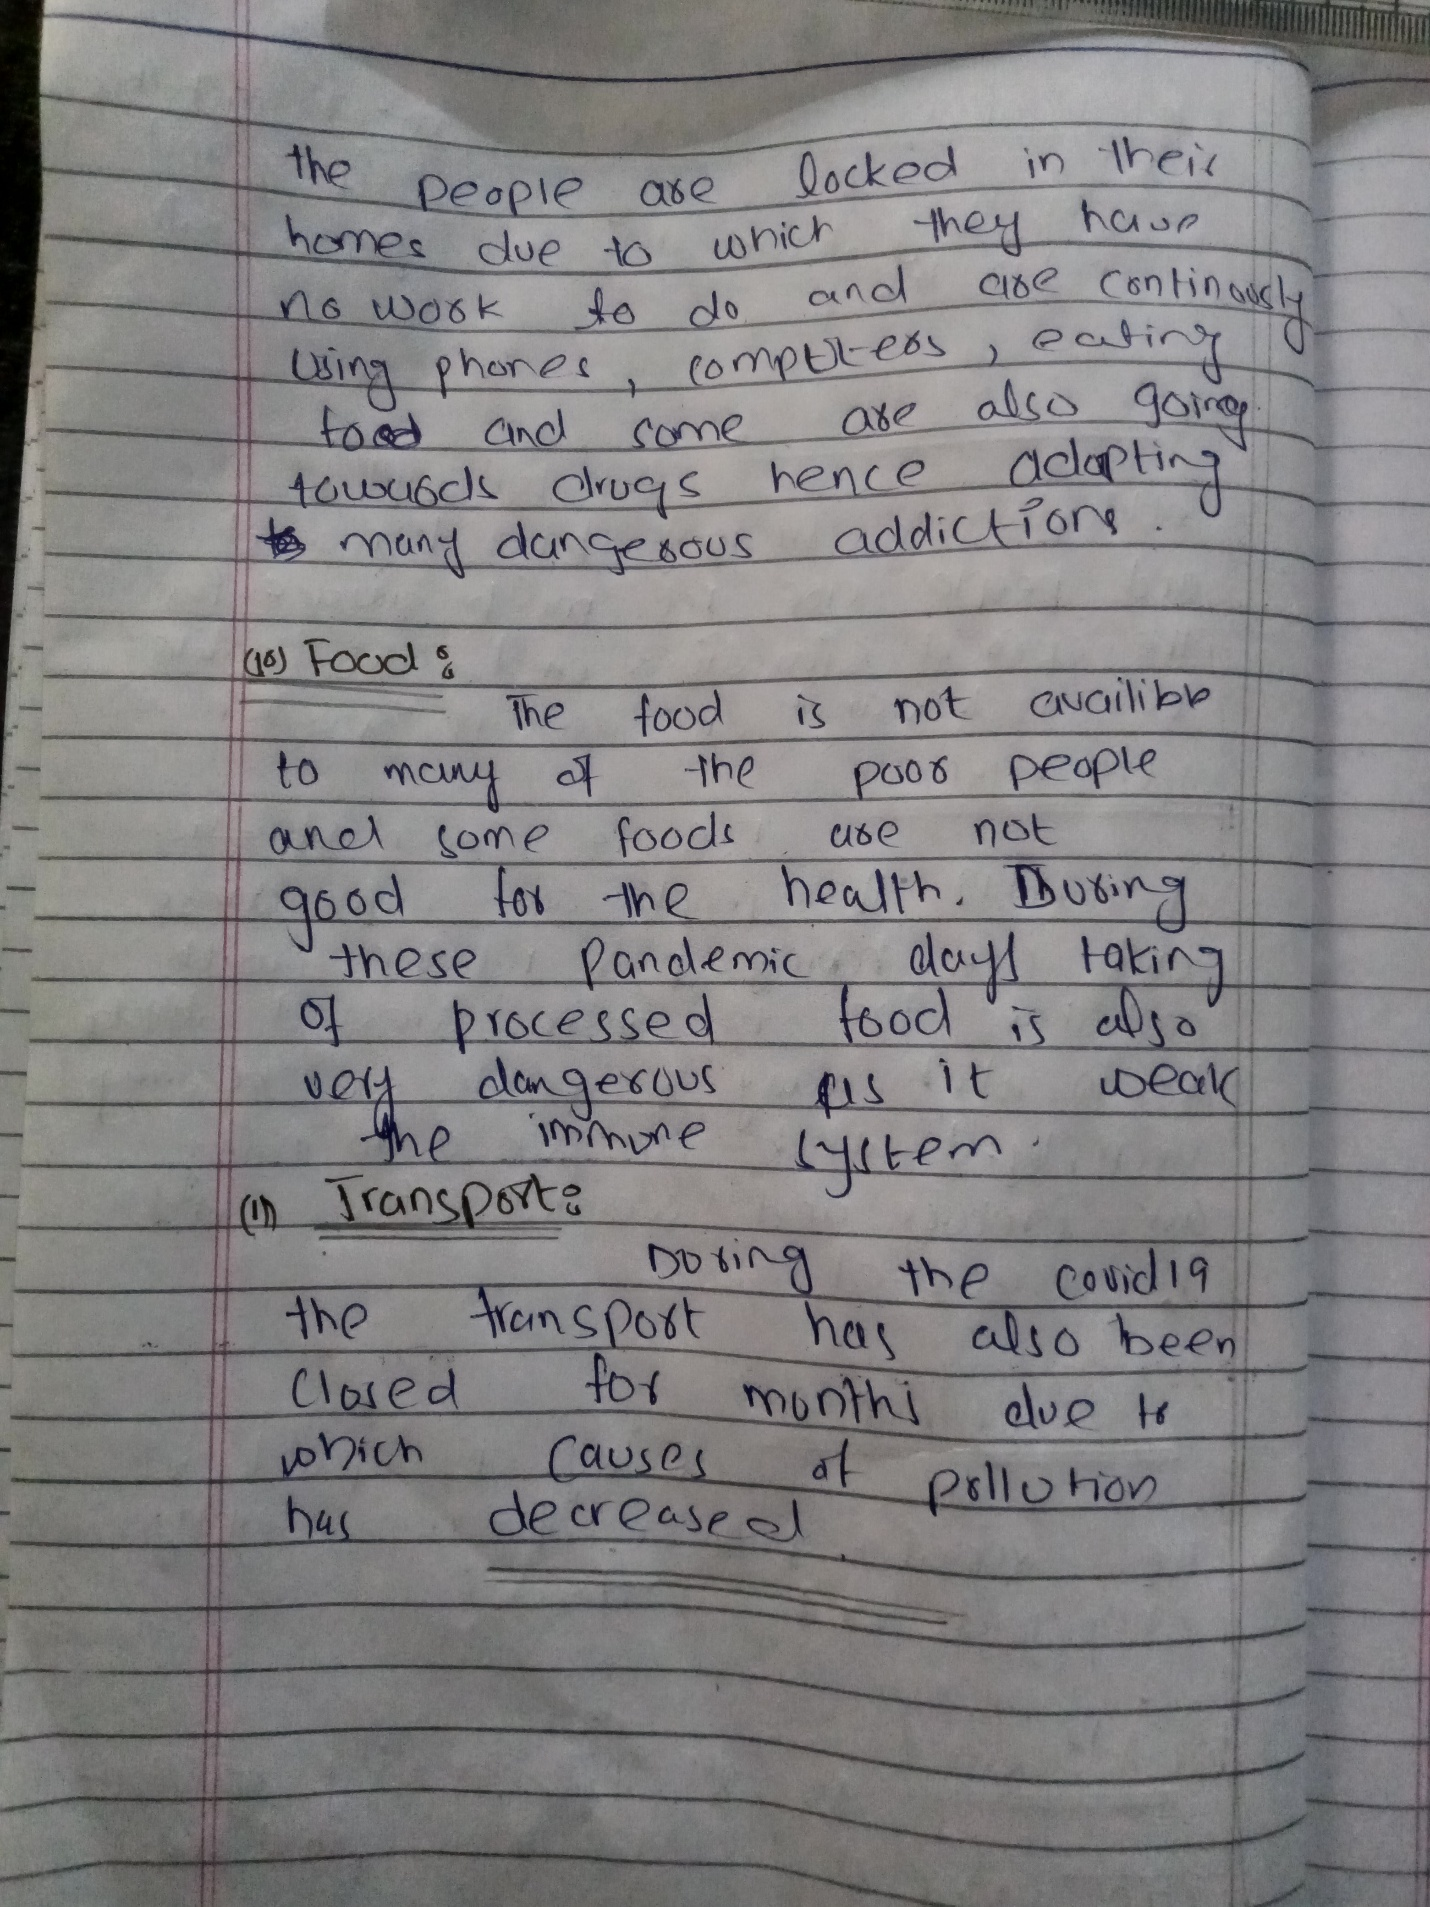 the people are locked in their
homes due to which they have
no work to do and are continously
using phones, computers, eating
food and some are also going
towards drugs hence adapting
many dangerous addictions.
(10) Food:
The food is not availible
to many of the poor people
and some foods are not
good for the health. During
these pandemic days taking
of processed food is also
very dangerous as it weak
the immune system.
(11) Transport:
During the covid19
the transport has also been
closed for months due to
which causes of pollution
has decreased